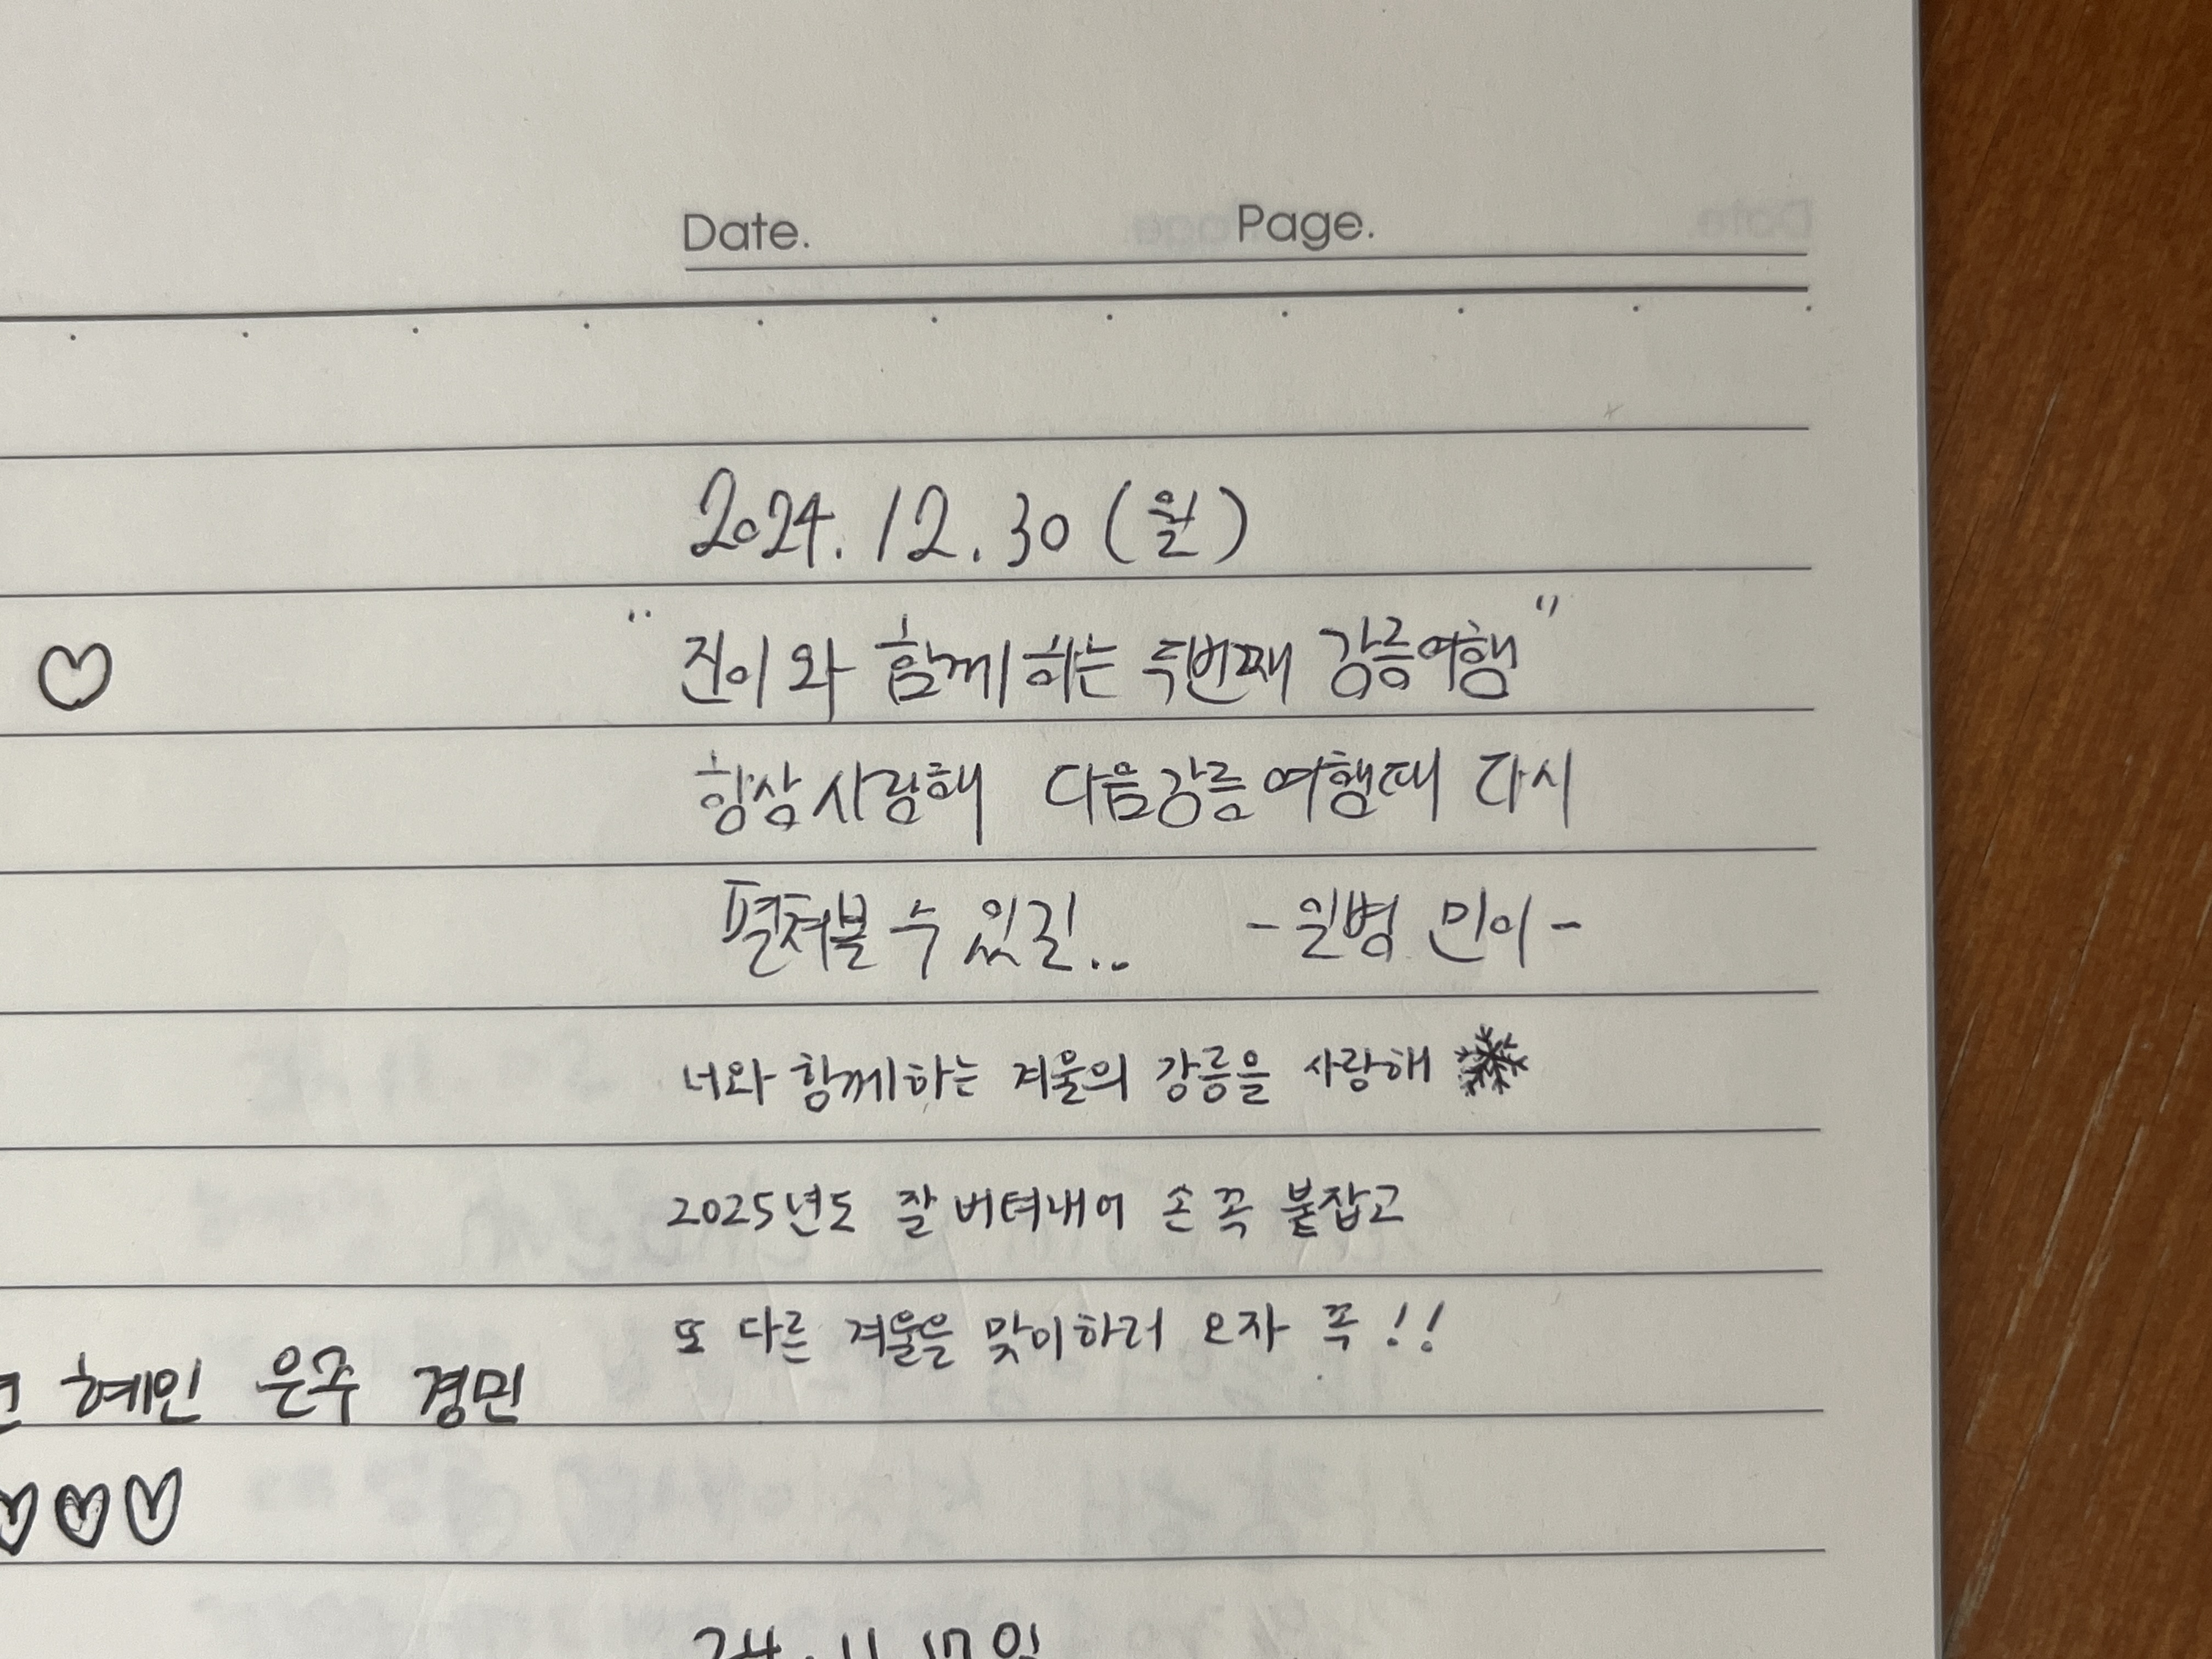 Date. Page.
2024. 12. 30 (월)
" 진이와 함께하는 두번째 강릉여행 "
항상 사랑해 다음 강릉 여행때 다시
펼쳐볼 수 있길.. - 일병 민이 -
너와 함께하는 겨울의 강릉을 사랑해
2025년도 잘 버텨내어 손 꼭 붙잡고
또 다른 겨울을 맞이하러 오자 꼭 !!
혜인 은주 경민
24. 11. 17 일